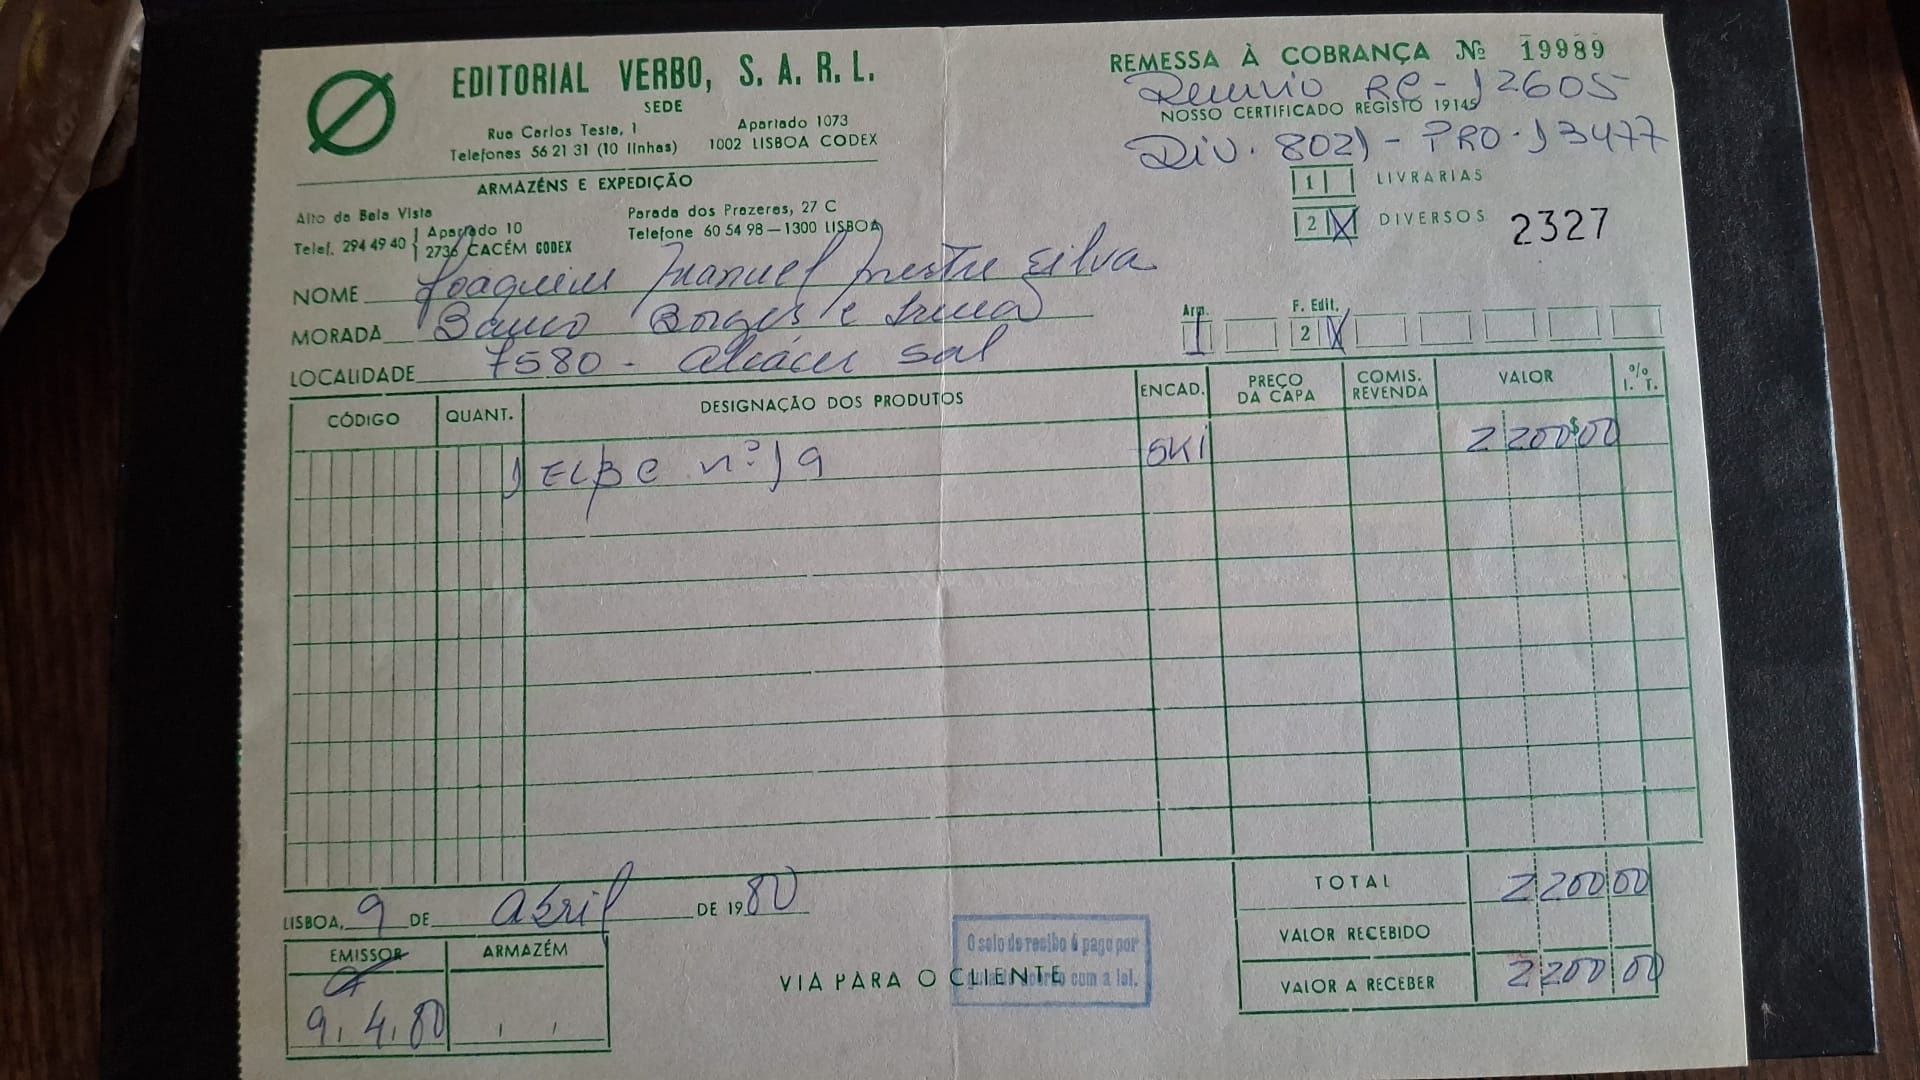 EDITORIAL VERBO, S. A. R. L.
SEDE
Rua Carlos Testa, 1
Telefones 56 21 31 (10 linhas)
Apartado 1073
1002 LISBOA CODEX
ARMAZÉNS E EXPEDIÇÃO
Alto da Bela Vista
Telef. 294 49 40
Apartado 10
2736 CACÉM CODEX
Parada dos Prazeres, 27 C
Telefone 60 54 98 — 1300 LISBOA
REMESSA À COBRANÇA Nº 19989
RC - 12605
NOSSO CERTIFICADO REGISTO 19145
Div. 8021 - PRO - 13477
1 LIVRARIAS
2 X DIVERSOS 2327
NOME Joaquim Manuel Mestre Silva
MORADA Banco Borges e Irmão
LOCALIDADE 7580 - Alcácer Sal
Arm. F. Edit.
1 2 X
CÓDIGO QUANT. DESIGNAÇÃO DOS PRODUTOS ENCAD. PREÇO DA CAPA COMIS. REVENDA VALOR % I. T.
1 ELBC nº 19 SKI 2 200$00
TOTAL 2 200 00
LISBOA, 9 DE Abril DE 1980
VALOR RECEBIDO
EMISSOR ARMAZÉM
9. 4. 80
VIA PARA O CLIENTE
O selo de recibo é pago por
com a lei.
VALOR A RECEBER 2 200 00